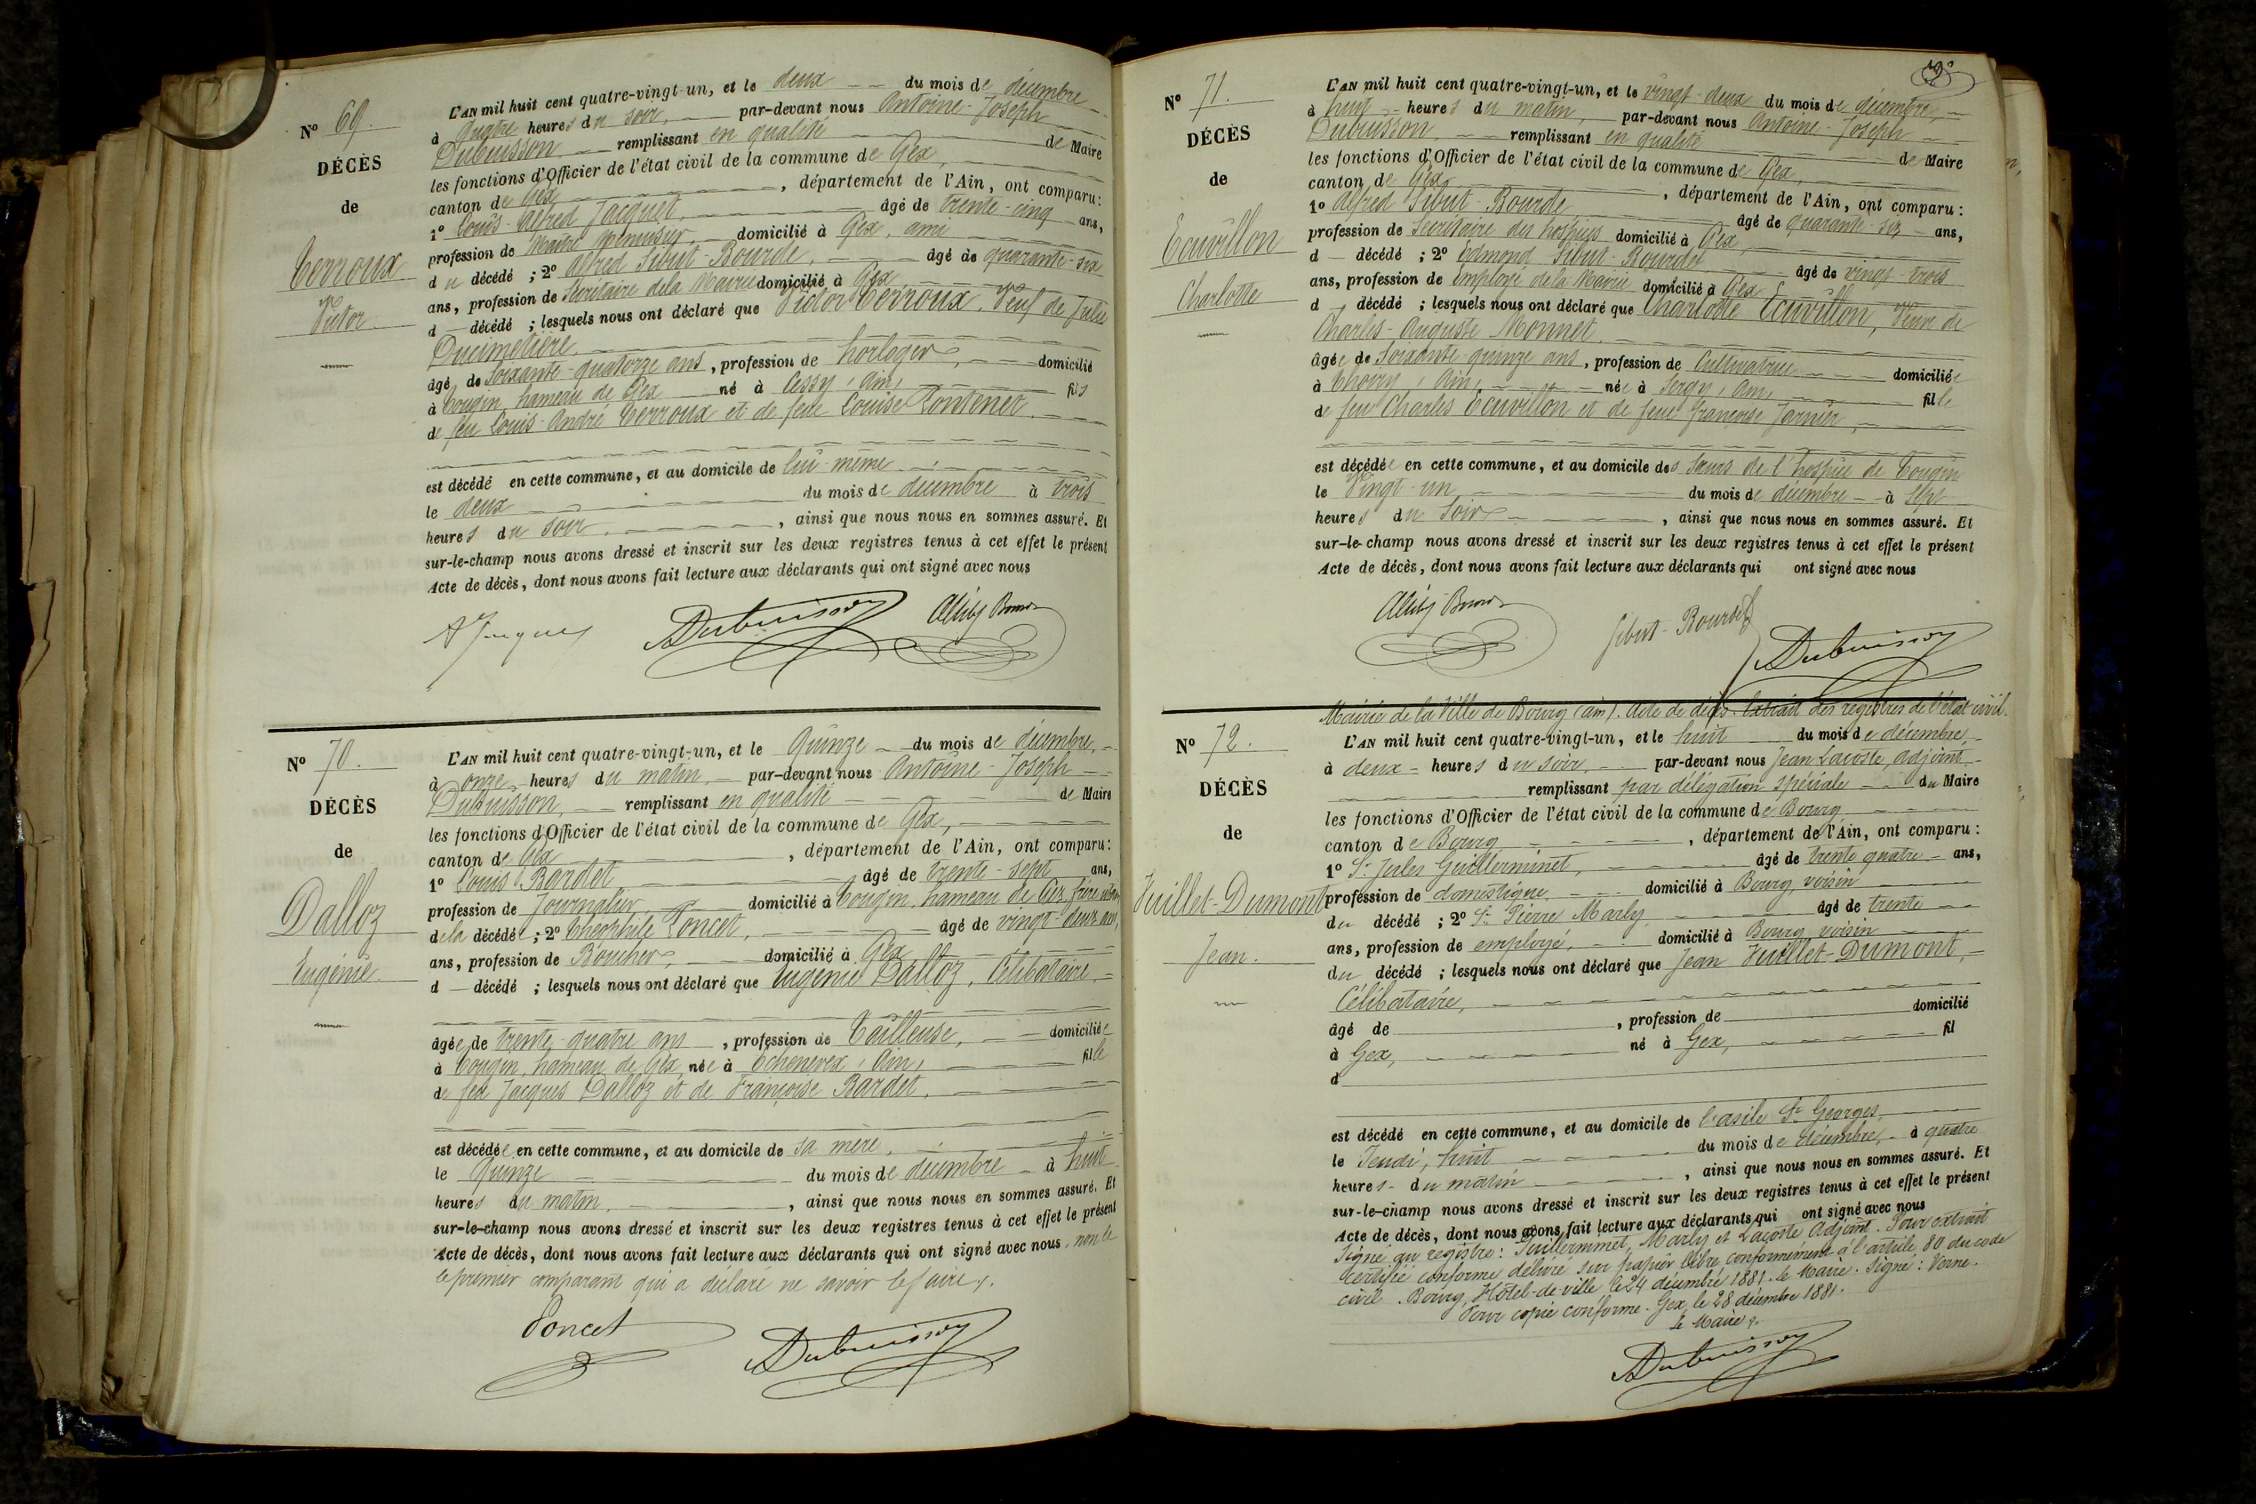 Nº 69.
DÉCÈS
de
Terroux
Victor.
L'AN mil huit cent quatre-vingt-un, et le deux du mois de décembre
à quatre heures du soir, par-devant nous Antoine-Joseph
Dubuisson remplissant en qualité de Maire
les fonctions d'Officier de l'état civil de la commune de Gex,
canton de Gex, département de l'Ain, ont comparu:
1º Louis-Alfred Jacquet, âgé de trente-cinq ans,
profession de Maître Menuisier, domicilié à Gex, ami
du décédé ; 2º Alfred Sibut-Bourde, âgé de quarante-six
ans, profession de Secrétaire de la Mairie domicilié à Gex
d décédé ; lesquels nous ont déclaré que Victor Terroux, Veuf de Julie
Ducimetière,
âgé de soixante-quatorze ans, profession de horloger, domicilié
à Tougin, hameau de Gex né à Cessy, Ain, fils
de feu Louis-André Terroux et de feue Louise Fontenet.
est décédé en cette commune, et au domicile de lui-même.
le deux du mois de décembre à trois
heures du soir, ainsi que nous nous en sommes assuré. Et
sur-le-champ nous avons dressé et inscrit sur les deux registres tenus à cet effet le présent
Acte de décès, dont nous avons fait lecture aux déclarants qui ont signé avec nous
Dubuisson
Nº 70.
DÉCÈS
de
Dalloz
Eugénie.
L'AN mil huit cent quatre-vingt-un, et le Quinze du mois de décembre,
à onze heures du matin, par-devant nous Antoine-Joseph
Dubuisson, remplissant en qualité de Maire
les fonctions d'Officier de l'état civil de la commune de Gex,
canton de Gex, département de l'Ain, ont comparu:
1º Louis Bardet âgé de trente-sept ans,
profession de Journalier, domicilié à Tougin, hameau de Gex, frère utérin
de la décédée ; 2º Théophile Poncet, âgé de vingt-deux ans,
ans, profession de Boucher, domicilié à Gex
d décédé ; lesquels nous ont déclaré que Eugénie Dalloz, Célibataire,
âgée de trente-quatre ans, profession de Tailleuse, domiciliée
à Tougin, hameau de Gex, née à Echenevex, Ain, fille
de feu Jacques Dalloz et de Françoise Bardet.
est décédée en cette commune, et au domicile de sa mère,
le Quinze du mois de décembre à huit
heures du matin, ainsi que nous nous en sommes assuré. Et
sur-le-champ nous avons dressé et inscrit sur les deux registres tenus à cet effet le présent
Acte de décès, dont nous avons fait lecture aux déclarants qui ont signé avec nous, non le
le premier comparant qui a déclaré ne savoir le faire.
Poncet
Dubuisson
Nº 71.
DÉCÈS
de
Ecuvillon
Charlotte
L'AN mil huit cent quatre-vingt-un, et le vingt-deux du mois de décembre,
à huit heures du matin, par-devant nous Antoine-Joseph
Dubuisson remplissant en qualité de Maire
les fonctions d'Officier de l'état civil de la commune de Gex,
canton de Gex, département de l'Ain, ont comparu:
1º Alfred Sibut-Bourde âgé de quarante-six ans,
profession de Secrétaire des hospices domicilié à Gex,
d décédé ; 2º Edmond Sibut-Bourde âgé de vingt-trois
ans, profession de employé de la Mairie domicilié à Gex
d décédé ; lesquels nous ont déclaré que Charlotte Ecuvillon, Veuve de
Charles-Auguste Monnet.
âgée de soixante-quinze ans, profession de Cultivatrice domiciliée
à Thoiry, Ain, née à Sergy, Ain, fille
de feu Charles Ecuvillon et de feue Françoise Jarnier,
est décédée en cette commune, et au domicile des Sœurs de l'hospice de Tougin
le Vingt-un du mois de décembre à sept
heures du soir, ainsi que nous nous en sommes assuré. Et
sur-le-champ nous avons dressé et inscrit sur les deux registres tenus à cet effet le présent
Acte de décès, dont nous avons fait lecture aux déclarants qui ont signé avec nous
Sibut-Bourde
Dubuisson
Mairie de la Ville de Bourg (Ain). Acte de décès. Extrait des registres de l'état civil.
Nº 72.
DÉCÈS
de
Vuillet-Dumont
Jean.
L'AN mil huit cent quatre-vingt-un, et le huit du mois de décembre,
à deux heures du soir, par-devant nous Jean Lacoste, adjoint
remplissant par délégation spéciale du Maire
les fonctions d'Officier de l'état civil de la commune de Bourg,
canton de Bourg, département de l'Ain, ont comparu:
1º Sr Jules Guillerminet, âgé de trente quatre ans,
profession de domestique domicilié à Bourg, voisin
du décédé ; 2º Sr Pierre Marly, âgé de trente
ans, profession de employé, domicilié à Bourg, voisin
du décédé ; lesquels nous ont déclaré que Jean Vuillet-Dumont,
Célibataire,
âgé de , profession de domicilié
à Gex, né à Gex, fil
d
est décédé en cette commune, et au domicile de l'asile St Georges,
le Jeudi, huit du mois de décembre, à quatre
heures du matin, ainsi que nous nous en sommes assuré. Et
sur-le-champ nous avons dressé et inscrit sur les deux registres tenus à cet effet le présent
Acte de décès, dont nous avons fait lecture aux déclarants qui ont signé avec nous
Signé au registre: Guillerminet, Marly et Lacoste Adjoint. Pour extrait
certifié conforme délivré sur papier libre conformément à l'article 80 du code
civil. Bourg, Hôtel-de-ville, le 24 décembre 1881. le Maire. Signé: Verne.
Pour copie conforme. Gex, le 28 décembre 1881.
le Maire,
Dubuisson